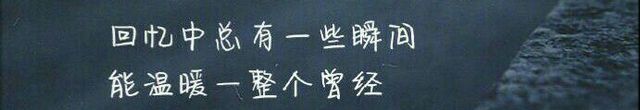 回忆中总有一些瞬间
能温暖一整个曾经